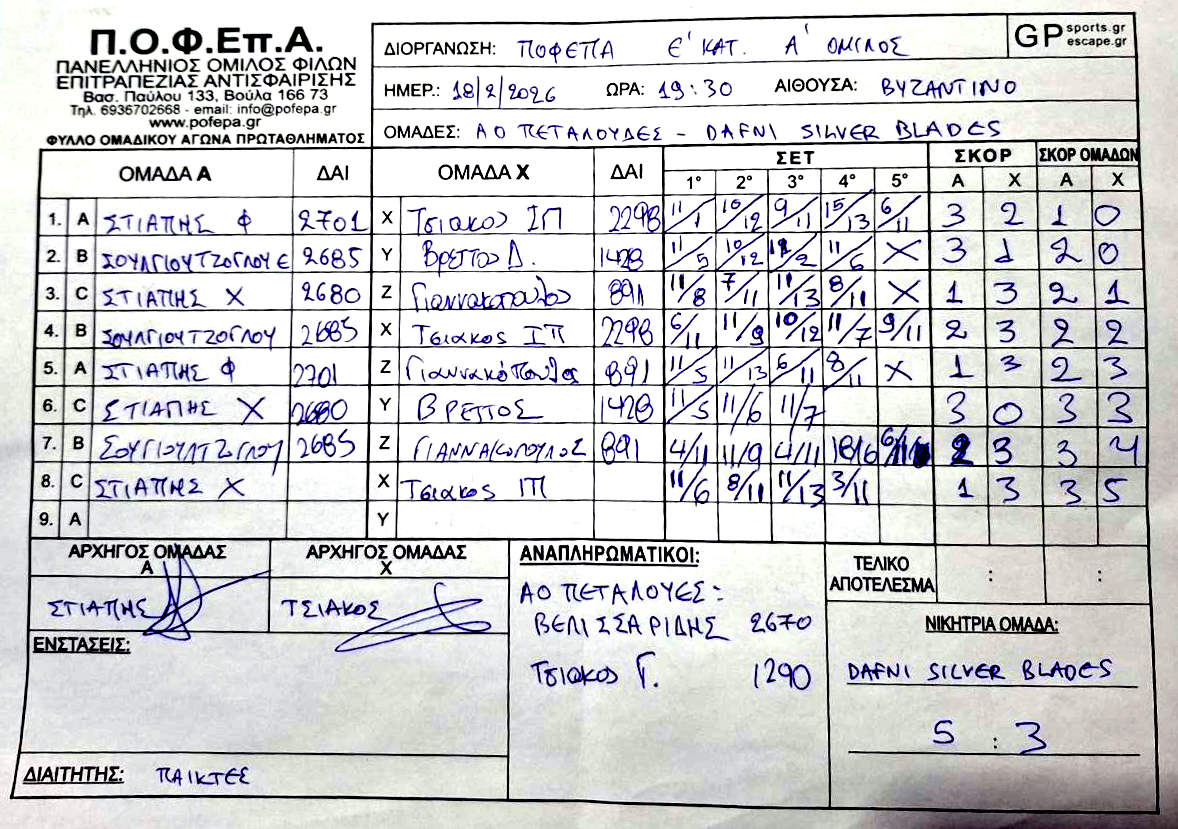 Π.Ο.Φ.Επ.Α.
ΠΑΝΕΛΛΗΝΙΟΣ ΟΜΙΛΟΣ ΦΙΛΩΝ
ΕΠΙΤΡΑΠΕΖΙΑΣ ΑΝΤΙΣΦΑΙΡΙΣΗΣ
Βασ. Παύλου 133, Βούλα 166 73
Τηλ. 6936702668 - email: info@pofepa.gr
www.pofepa.gr
ΦΥΛΛΟ ΟΜΑΔΙΚΟΥ ΑΓΩΝΑ ΠΡΩΤΑΘΛΗΜΑΤΟΣ
ΔΙΟΡΓΑΝΩΣΗ: ΠΟΦΕΠΑ Ε' ΚΑΤ. Α' ΟΜΙΛΟΣ
GP sports.gr escape.gr
ΗΜΕΡ.: 18/2/2026 ΩΡΑ: 19:30 ΑΙΘΟΥΣΑ: ΒΥΖΑΝΤΙΝΟ
ΟΜΑΔΕΣ: ΑΟ ΠΕΤΑΛΟΥΔΕΣ - DAFNI SILVER BLADES
ΟΜΑΔΑ Α ΔΑΙ ΟΜΑΔΑ Χ ΔΑΙ ΣΕΤ ΣΚΟΡ ΣΚΟΡ ΟΜΑΔΩΝ
1° 2° 3° 4° 5° Α Χ Α Χ
1. A ΣΤΙΑΠΗΣ Φ 2701 X Τσιακος ΙΠ 2298 11/1 10/12 9/11 15/13 6/11 3 2 1 0
2. B ΣΟΥΛΓΙΟΥΤΖΟΓΛΟΥ Ε 2685 Y Βρεττος Δ. 1428 11/5 10/12 12/2 11/6 X 3 1 2 0
3. C ΣΤΙΑΠΗΣ Χ 2680 Z Γιαννακοπουλος 891 11/8 7/11 11/13 8/11 X 1 3 2 1
4. B ΣΟΥΛΓΙΟΥΤΖΟΓΛΟΥ 2685 X Τσιακος ΙΠ 2298 6/11 11/9 10/12 11/7 9/11 2 3 2 2
5. A ΣΤΙΑΠΗΣ Φ 2701 Z Γιαννακόπουλος 891 11/5 11/13 6/11 8/11 X 1 3 2 3
6. C ΣΤΙΑΠΗΣ Χ 2680 Y ΒΡΕΤΤΟΣ 1428 11/5 11/6 11/7 3 0 3 3
7. B ΣΟΥΓΙΟΥΛΤΖΟΓΛΟΥ 2685 Z ΓΙΑΝΝΑΚΟΠΟΥΛΟΣ 891 4/11 11/9 4/11 18/16 6/11 2 3 3 4
8. C ΣΤΙΑΠΗΣ Χ X Τσιακος ΙΠ 11/6 8/11 11/13 3/11 1 3 3 5
9. A Y
ΑΡΧΗΓΟΣ ΟΜΑΔΑΣ Α ΑΡΧΗΓΟΣ ΟΜΑΔΑΣ Χ
ΣΤΙΑΠΗΣ ΤΣΙΑΚΟΣ
ΕΝΣΤΑΣΕΙΣ:
ΔΙΑΙΤΗΤΗΣ: ΠΑΙΚΤΕΣ
ΑΝΑΠΛΗΡΩΜΑΤΙΚΟΙ:
ΑΟ ΠΕΤΑΛΟΥΕΣ:
ΒΕΛΙΣΣΑΡΙΔΗΣ 2670
Τσιακος Γ. 1290
ΤΕΛΙΚΟ ΑΠΟΤΕΛΕΣΜΑ : :
ΝΙΚΗΤΡΙΑ ΟΜΑΔΑ:
DAFNI SILVER BLADES
5 : 3